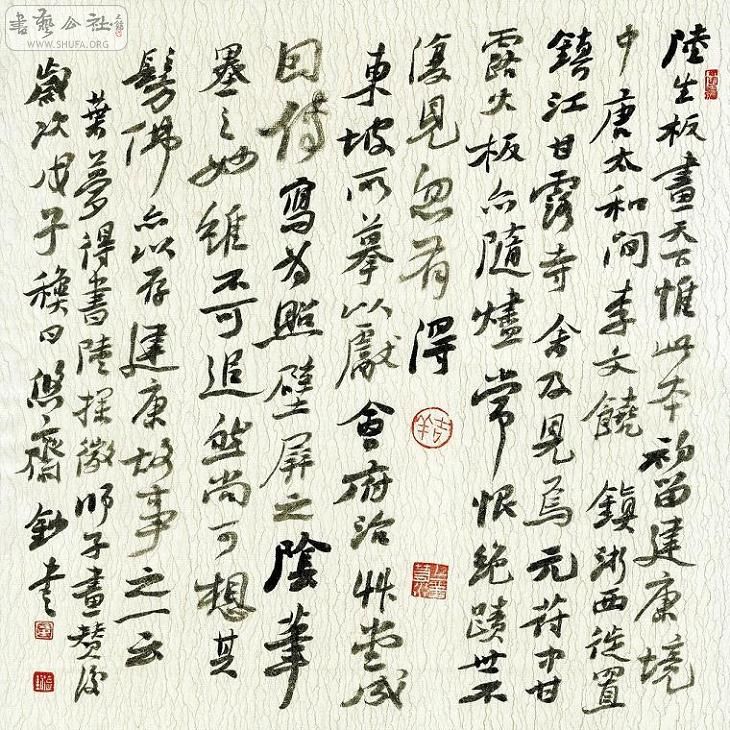 書藝公社
WWW.SHUFA.ORG
陸生板畫天下惟此本初留建康境
中唐太和間李文饒鎮浙西徙置
鎮江甘露寺余及見焉元符中甘
露火板亦隨燼常恨絕蹟世不
復見忽有得
東坡所摹以獻會府治艸堂成
因傳寫為照壁屏之陰筆
墨之妙雖不可追然尚可想其
髣佛亦以存建康故事之一云
葉夢得書陸探微師子畫贊後
歲次戊子 日悠齋鈔書